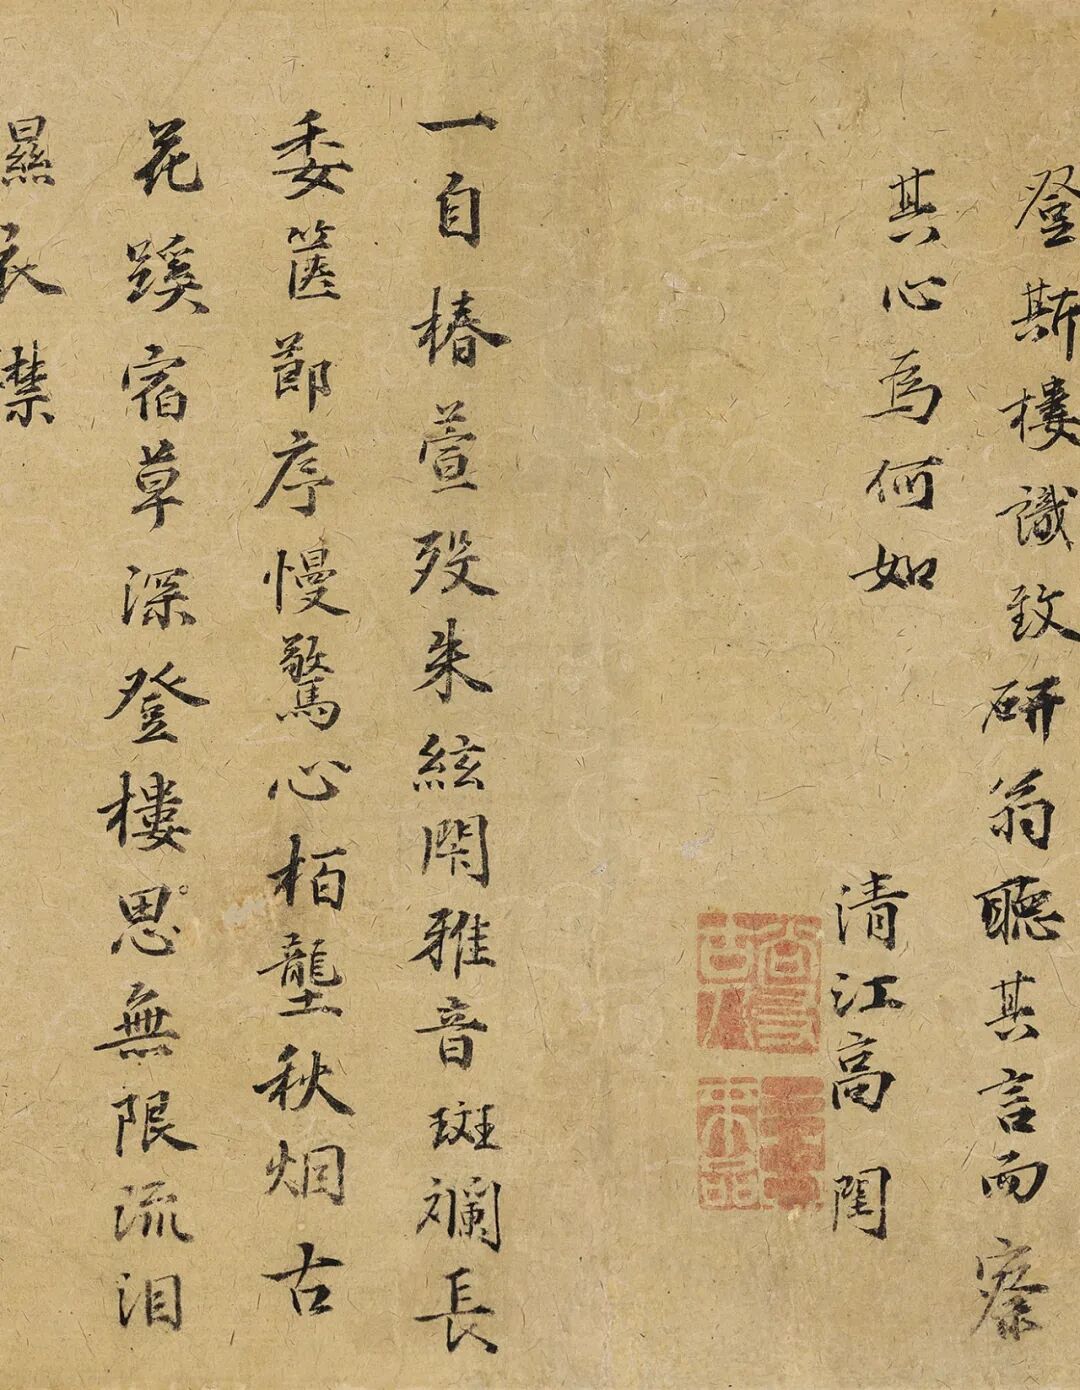 登斯樓識致研翁聽其言而察
其心為何如
清江高閏
一自椿萱歿朱絃閑雅音斑斕長
委篋節序慢驚心栢壟秋烟古
花蹊宿草深登樓思無限流泪
濕衣襟